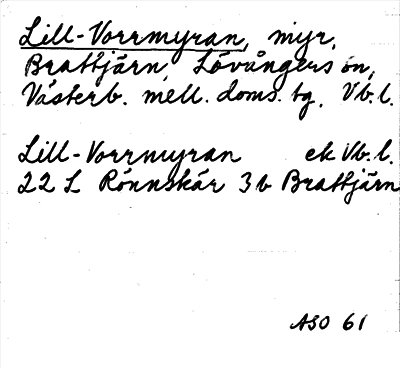 Lill-Vorrmyran, myr,
Brattjärn, Lövångers sn,
Västerb. mell. doms. tg. Vb.l.
Lill-Vorrmyran ek Vb.l.
22 L Rönnskär 3b Brattjärn
ASO 61